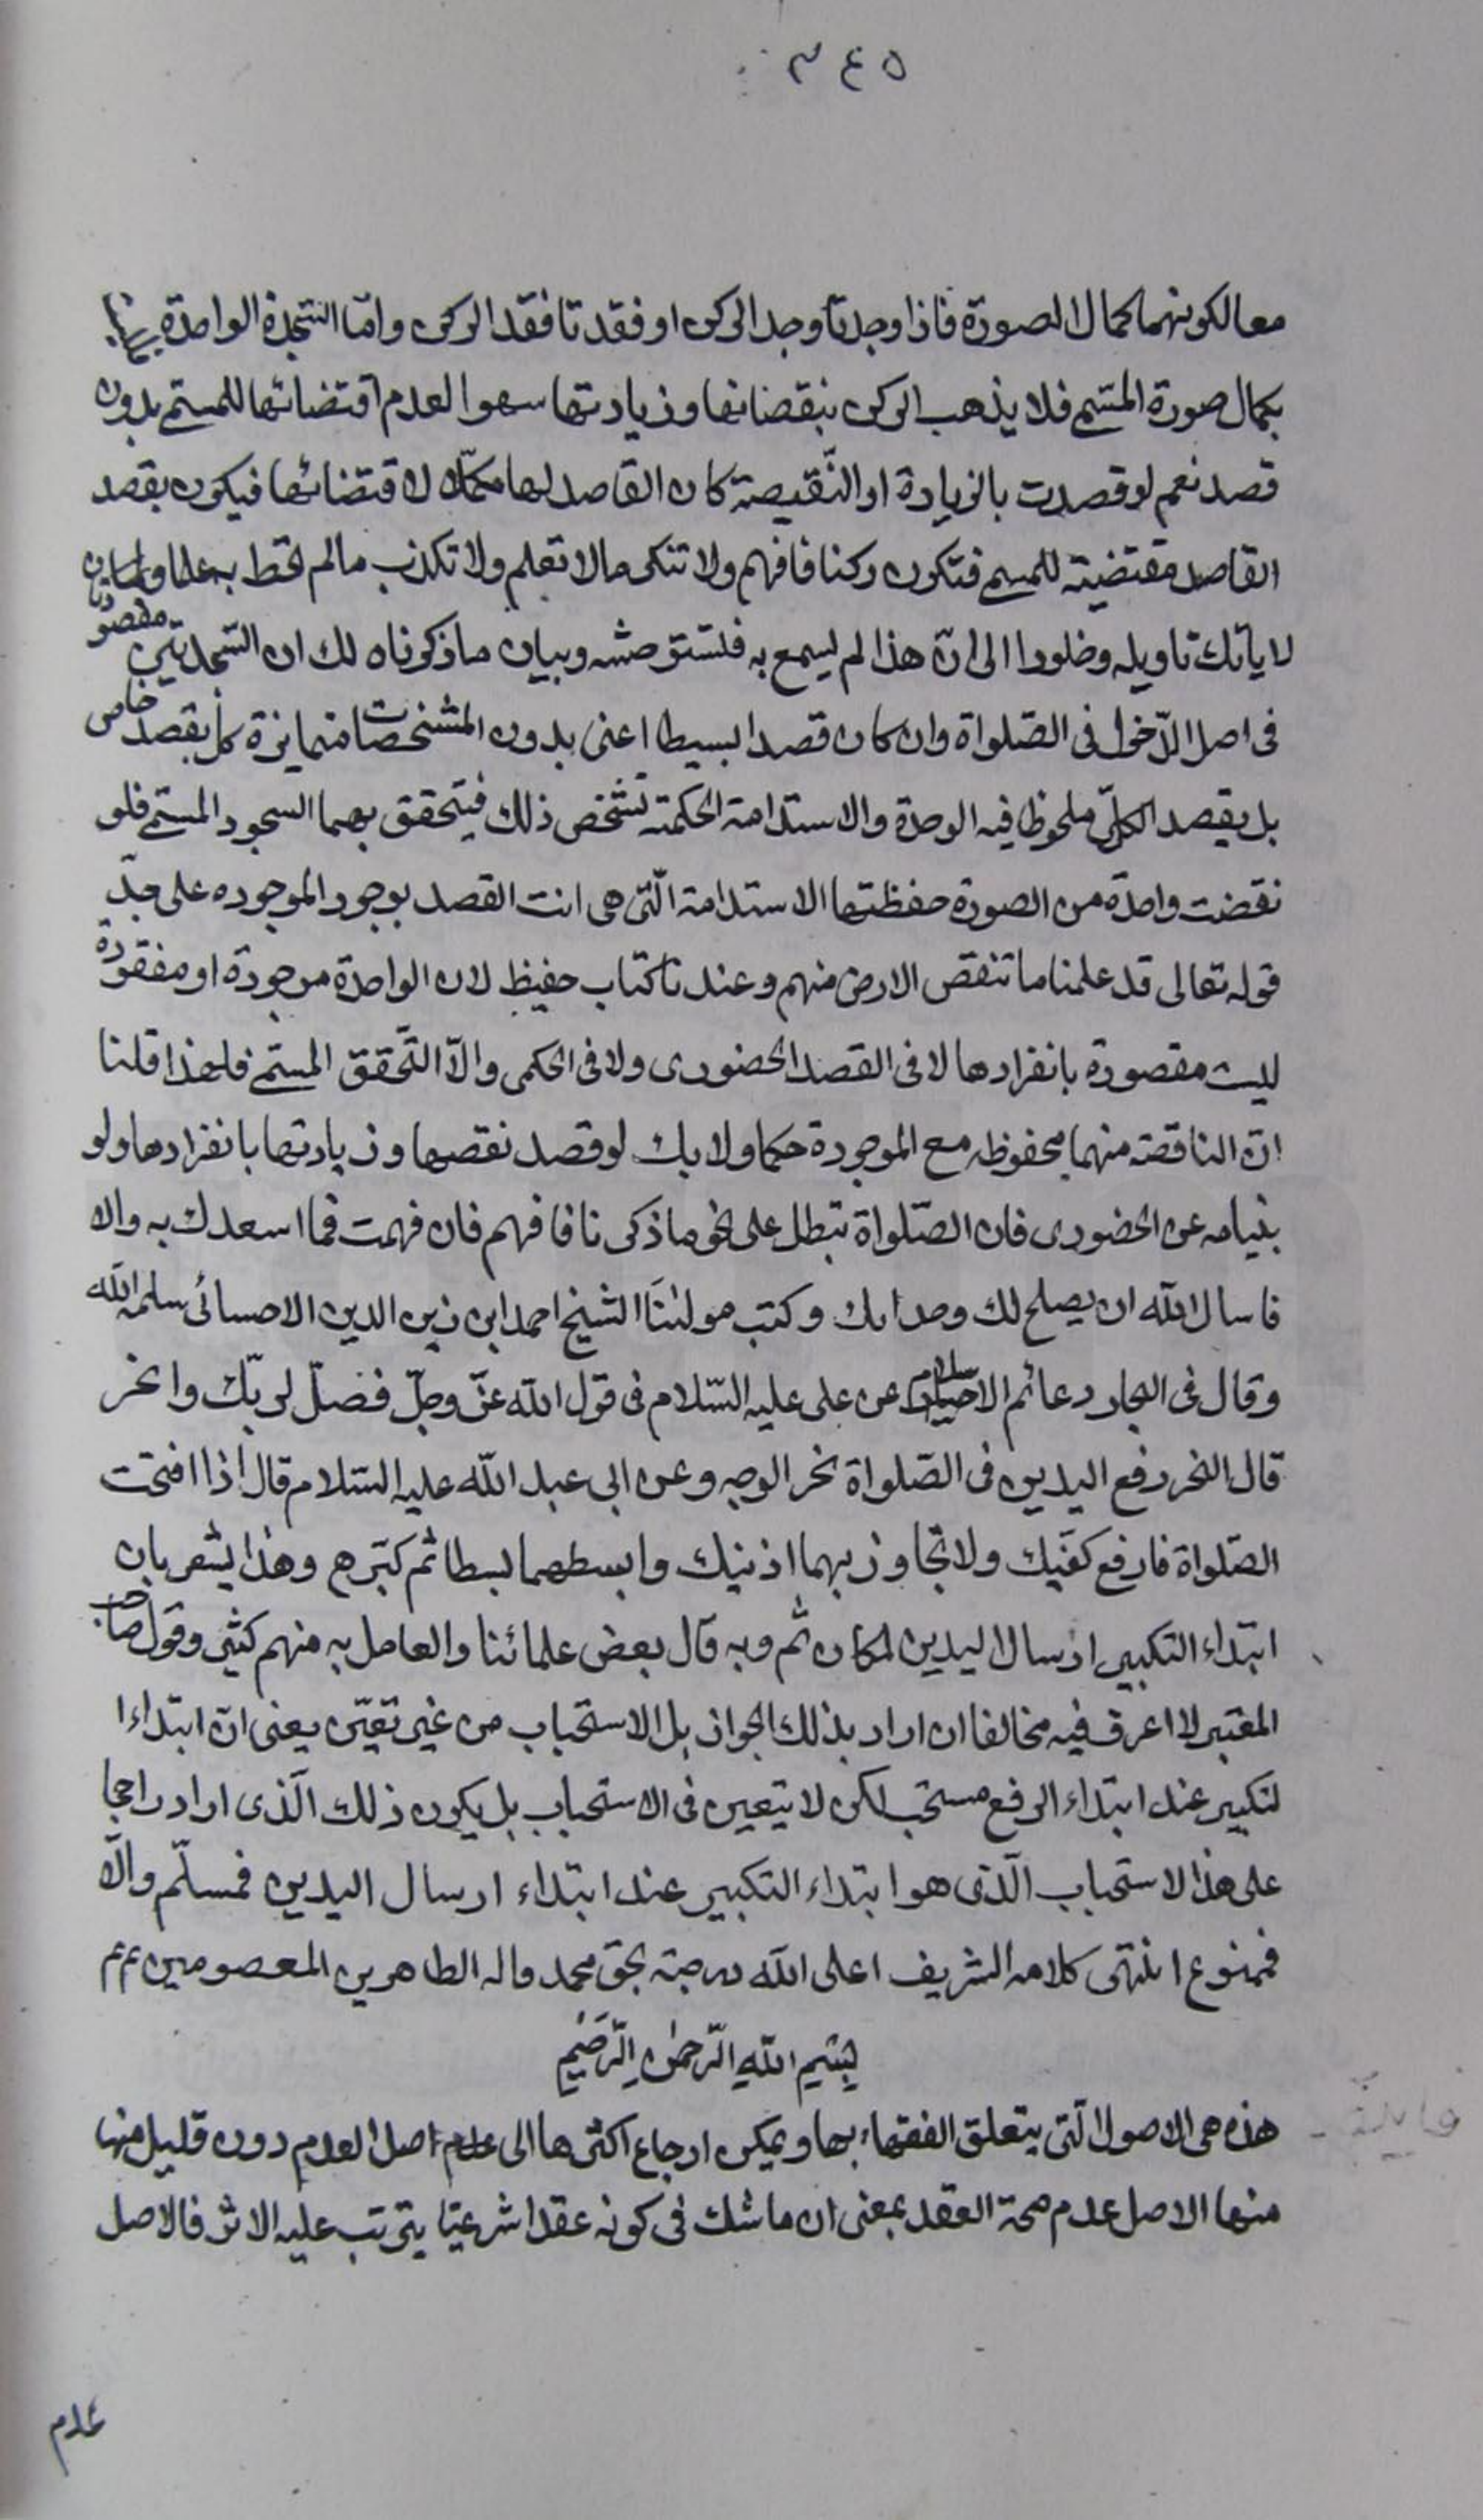 ٣٤٥
معا لكونهما كمال الصورة فاذا وجدتا وجد الركن او فقدتا فقد الركن وامّا السّجدة الواحدة
بكمال صورة المسمى فلا يذهب الركن بنقصانها وزيادتها سهوا لعدم اقتضائها للمسمى بدون
قصد نعم لو قصدت بالزيادة او النّقيصة كان القاصد لها مكمّلا لاقتضائها فيكون بقصد
القاصد مقتضية للمسمى فتكون ركنا فافهم ولا تنكر ما لا تعلم ولا تكذب ما لم تحط به علما ولما
لا ياتك تاويله وخلودا الى انّ هذا لم يسمع به فتستوحشه وبيان ما ذكرناه لك ان السّجدتين مقصودتان
فى اصل الدّخول فى الصّلواة وان كان قصدا بسيطا اعنى بدون المشخصات متمايزة كل بقصد خاص
بل بقصد الكلّى ملحوظا فيه الوحدة والاستدامة الحكمية تشخص ذلك فيتحقق بهما السجود المسمى فلو
نقضت واحدة من الصورة حفظتها الاستدامة الّتى هى انت القصد بوجود الموجوده على حدّ
قوله تعالى قد علمنا ما تنقص الارض منهم وعندنا كتاب حفيظ لان الواحدة موجودة او مفقودة
ليست مقصورة بانفرادها لا فى القصد الحضورى ولا فى الحكمى والّا التّحقق المسمى فلهذا قلنا
انّ الناقصة منهما محفوظه مع الموجودة حكما ولا بك لو قصد نقصها وزيادتها بانفرادها ولو
بنيامه عن الحضورى فان الصّلواة تبطل على نحو ما ذكرنا فافهم فان فهمت فما اسعدك به والا
فاسال الله ان يصلح لك وجدانك وكتب مولٰننَا الشيخ احمد ابن زين الدين الاحسائى سلمه الله
وقال فى البحار دعائم الاسلام عن على عليه السّلام فى قول الله عزّ وجلّ فصلّ لربّك وانحر
قال النحر رفع اليدين فى الصّلواة نحر الوجه وعن ابى عبد الله عليه السّلام قال اذا افتحت
الصّلواة فارفع كفّيك ولا تجاوز بهما اذنيك وابسطهما بسطا ثم كبّرهم وهذا يشعر بان
ابتداء التكبير ارسال اليدين لمكان ثم وبه قال بعض علمائنا والعامل به منهم كثير وقول صاحب
المعتبر لا اعرف فيه مخالفا ان اراد بذلك الجواز بل الاستحباب من غير تعيّن يعنى انّ ابتداء ا
لتكبير عند ابتداء الرفع مستحب لكن لا يتعين فى الاستحباب بل يكون ذلك الّذى اراد راجحا
على هذا لاستحباب الّذى هو ابتداء التكبير عند ابتداء ارسال اليدين فمسلّم والّا
فممنوع انتهى كلامه الشريف اعلى الله درجته بحق محمد واله الطاهرين المعصومين عم عم
بسْمِ اللهِ الرّحمٰنِ الرّحَيْمِ
هذه هى الاصول الّتى يتعلق الفقهاء بها ويمكن ارجاع اكثرها الى اصل العدم دون قليل منها
منها الاصل عدم صحة العقد بمعنى ان ما شك فى كونه عقدا شرعيّا يترتب عليه الاثر فالاصل
عدم